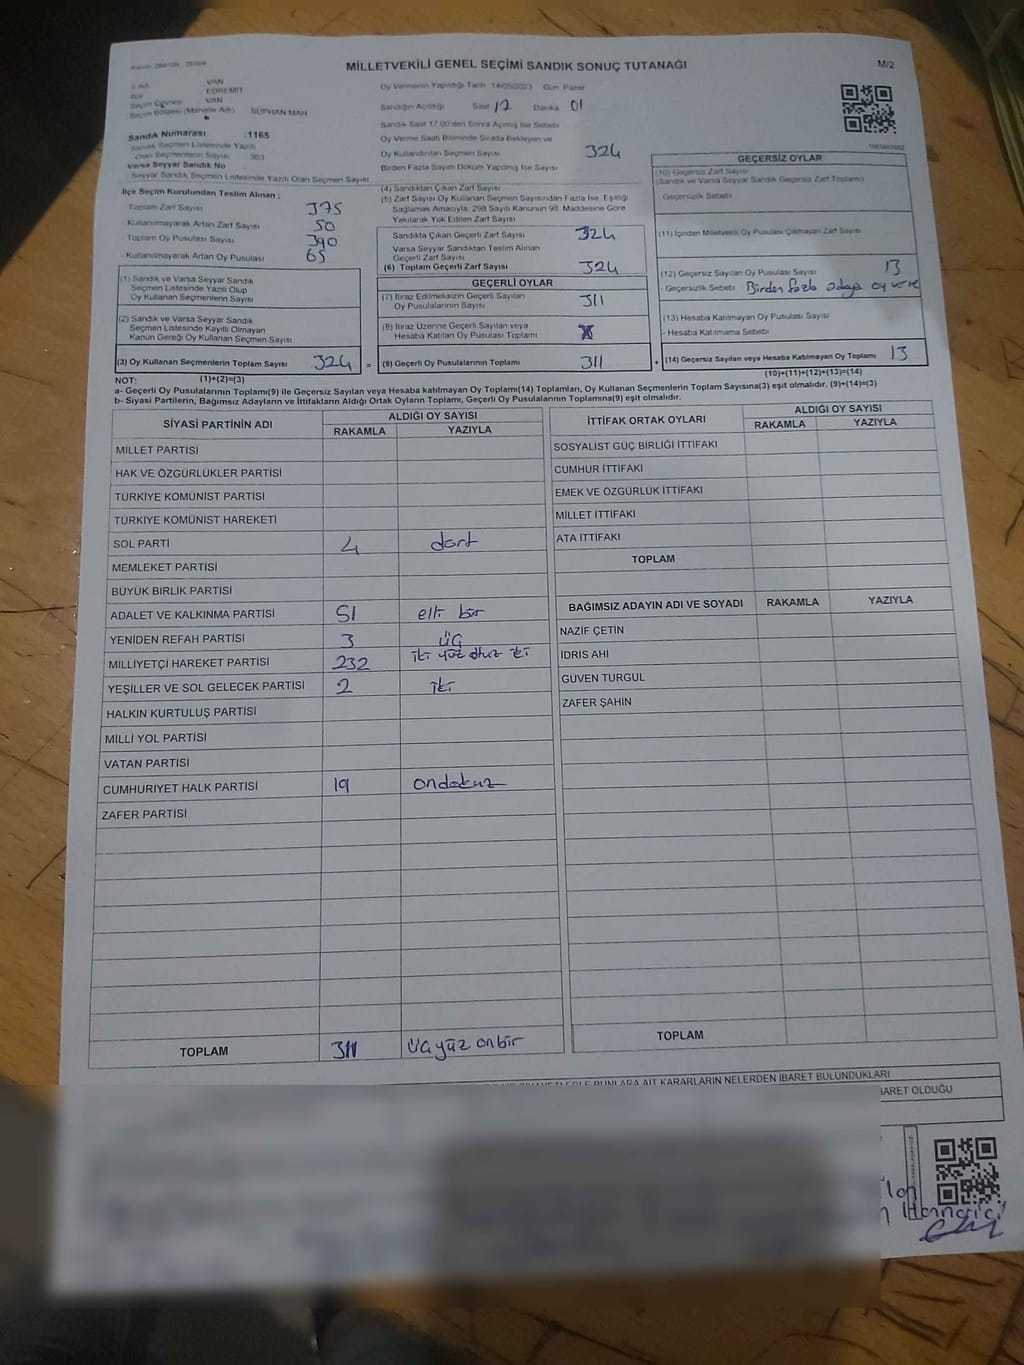 MİLLETVEKİLİ GENEL SEÇİMİ SANDIK SONUÇ TUTANAĞI
M/2
İlçe
VAN
EDREMİT
VAN
Seçim Bölgesi (Mahalle Adı) SÜPHAN MAH
Sandık Numarası :1165
Sandık Seçmen Listesinde Yazılı
Olan Seçmenlerin Sayısı 363
Varsa Seyyar Sandık No
Seyyar Sandık Seçmen Listesinde Yazılı Olan Seçmen Sayısı
Oy Vermenin Yapıldığı Tarih 14/05/2023 Gün Pazar
Sandığın Açıldığı Saat 17 Dakika 01
Sandık Saat 17.00'den Sonra Açılmış İse Sebebi
Oy Verme Saati Bitiminde Sırada Bekleyen ve
Oy Kullandırılan Seçmen Sayısı 324
Birden Fazla Sayım Döküm Yapılmış İse Sayısı
İlçe Seçim Kurulundan Teslim Alınan ;
Toplam Zarf Sayısı 375
Kullanılmayarak Artan Zarf Sayısı 50
Toplam Oy Pusulası Sayısı 390
Kullanılmayarak Artan Oy Pusulası 65
(1) Sandık ve Varsa Seyyar Sandık
Seçmen Listesinde Yazılı Olup
Oy Kullanan Seçmenlerin Sayısı
(2) Sandık ve Varsa Seyyar Sandık
Seçmen Listesinde Kayıtlı Olmayan
Kanun Gereği Oy Kullanan Seçmen Sayısı
(3) Oy Kullanan Seçmenlerin Toplam Sayısı 324 =
(4) Sandıktan Çıkan Zarf Sayısı
(5) Zarf Sayısı Oy Kullanan Seçmen Sayısından Fazla İse, Eşitliği
Sağlamak Amacıyla, 298 Sayılı Kanunun 98. Maddesine Göre
Yakılarak Yok Edilen Zarf Sayısı
Sandıkta Çıkan Geçerli Zarf Sayısı 324
Varsa Seyyar Sandıktan Teslim Alınan
Geçerli Zarf Sayısı
(6) Toplam Geçerli Zarf Sayısı 324
GEÇERLİ OYLAR
(7) İtiraz Edilmeksizin Geçerli Sayılan
Oy Pusulalarının Sayısı 311
(8) İtiraz Üzerine Geçerli Sayılan veya
Hesaba Katılan Oy Pusulası Toplamı
(9) Geçerli Oy Pusulalarının Toplamı 311 +
GEÇERSİZ OYLAR
(10) Geçersiz Zarf Sayısı
(Sandık ve Varsa Seyyar Sandık Geçersiz Zarf Toplamı)
- Geçersizlik Sebebi
(11) İçinden Milletvekili Oy Pusulası Çıkmayan Zarf Sayısı
(12) Geçersiz Sayılan Oy Pusulası Sayısı 13
- Geçersizlik Sebebi Birden fazla adaya oy verme
(13) Hesaba Katılmayan Oy Pusulası Sayısı
- Hesaba Katılmama Sebebi
(14) Geçersiz Sayılan veya Hesaba Katılmayan Oy Toplamı 13
NOT: (1)+(2)=(3)
(10)+(11)+(12)+(13)=(14)
a- Geçerli Oy Pusulalarının Toplamı(9) ile Geçersiz Sayılan veya Hesaba katılmayan Oy Toplamı(14) Toplamları, Oy Kullanan Seçmenlerin Toplam Sayısına(3) eşit olmalıdır. (9)+(14)=(3)
b- Siyasi Partilerin, Bağımsız Adayların ve İttifakların Aldığı Ortak Oyların Toplamı, Geçerli Oy Pusulalarının Toplamına(9) eşit olmalıdır.
SİYASİ PARTİNİN ADI
ALDIĞI OY SAYISI
RAKAMLA YAZIYLA
MİLLET PARTİSİ
HAK VE ÖZGÜRLÜKLER PARTİSİ
TÜRKİYE KOMÜNİST PARTİSİ
TÜRKİYE KOMÜNİST HAREKETİ
SOL PARTİ 4 dört
MEMLEKET PARTİSİ
BÜYÜK BİRLİK PARTİSİ
ADALET VE KALKINMA PARTİSİ 51 elli bir
YENİDEN REFAH PARTİSİ 3 üç
MİLLİYETÇİ HAREKET PARTİSİ 232 iki yüz otuz iki
YEŞİLLER VE SOL GELECEK PARTİSİ 2 iki
HALKIN KURTULUŞ PARTİSİ
MİLLİ YOL PARTİSİ
VATAN PARTİSİ
CUMHURİYET HALK PARTİSİ 19 ondokuz
ZAFER PARTİSİ
TOPLAM 311 üçyüz onbir
İTTİFAK ORTAK OYLARI
ALDIĞI OY SAYISI
RAKAMLA YAZIYLA
SOSYALİST GÜÇ BİRLİĞİ İTTİFAKI
CUMHUR İTTİFAKI
EMEK VE ÖZGÜRLÜK İTTİFAKI
MİLLET İTTİFAKI
ATA İTTİFAKI
TOPLAM
BAĞIMSIZ ADAYIN ADI VE SOYADI RAKAMLA YAZIYLA
NAZİF ÇETİN
İDRİS AHİ
GÜVEN TURGUL
ZAFER ŞAHİN
TOPLAM
BUNLARA AİT KARARLARIN NELERDEN İBARET BULUNDUKLARI
İBARET OLDUĞU